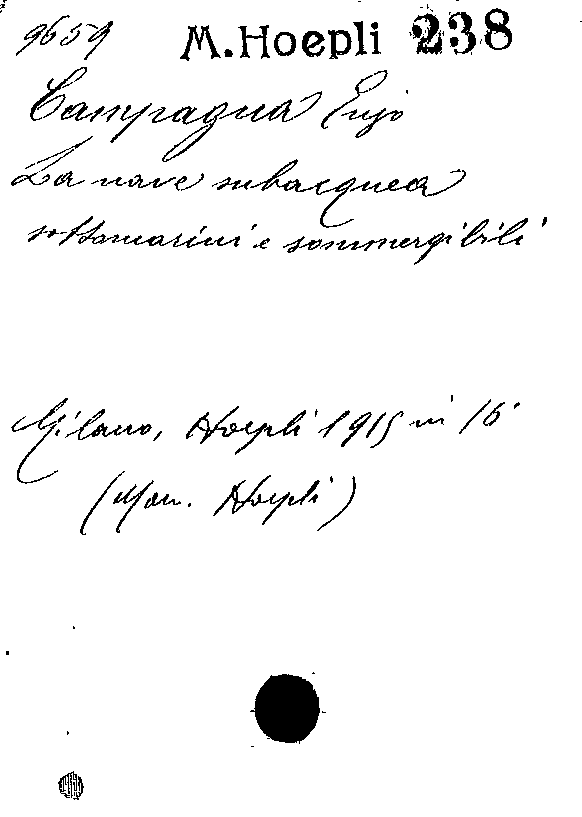 9659 M. Hoepli 238
Campagna Enjo
La nave subacquea
sottomarini e sommergibili
Milano, Hoepli 1915 in 16°
(Man. Hoepli)